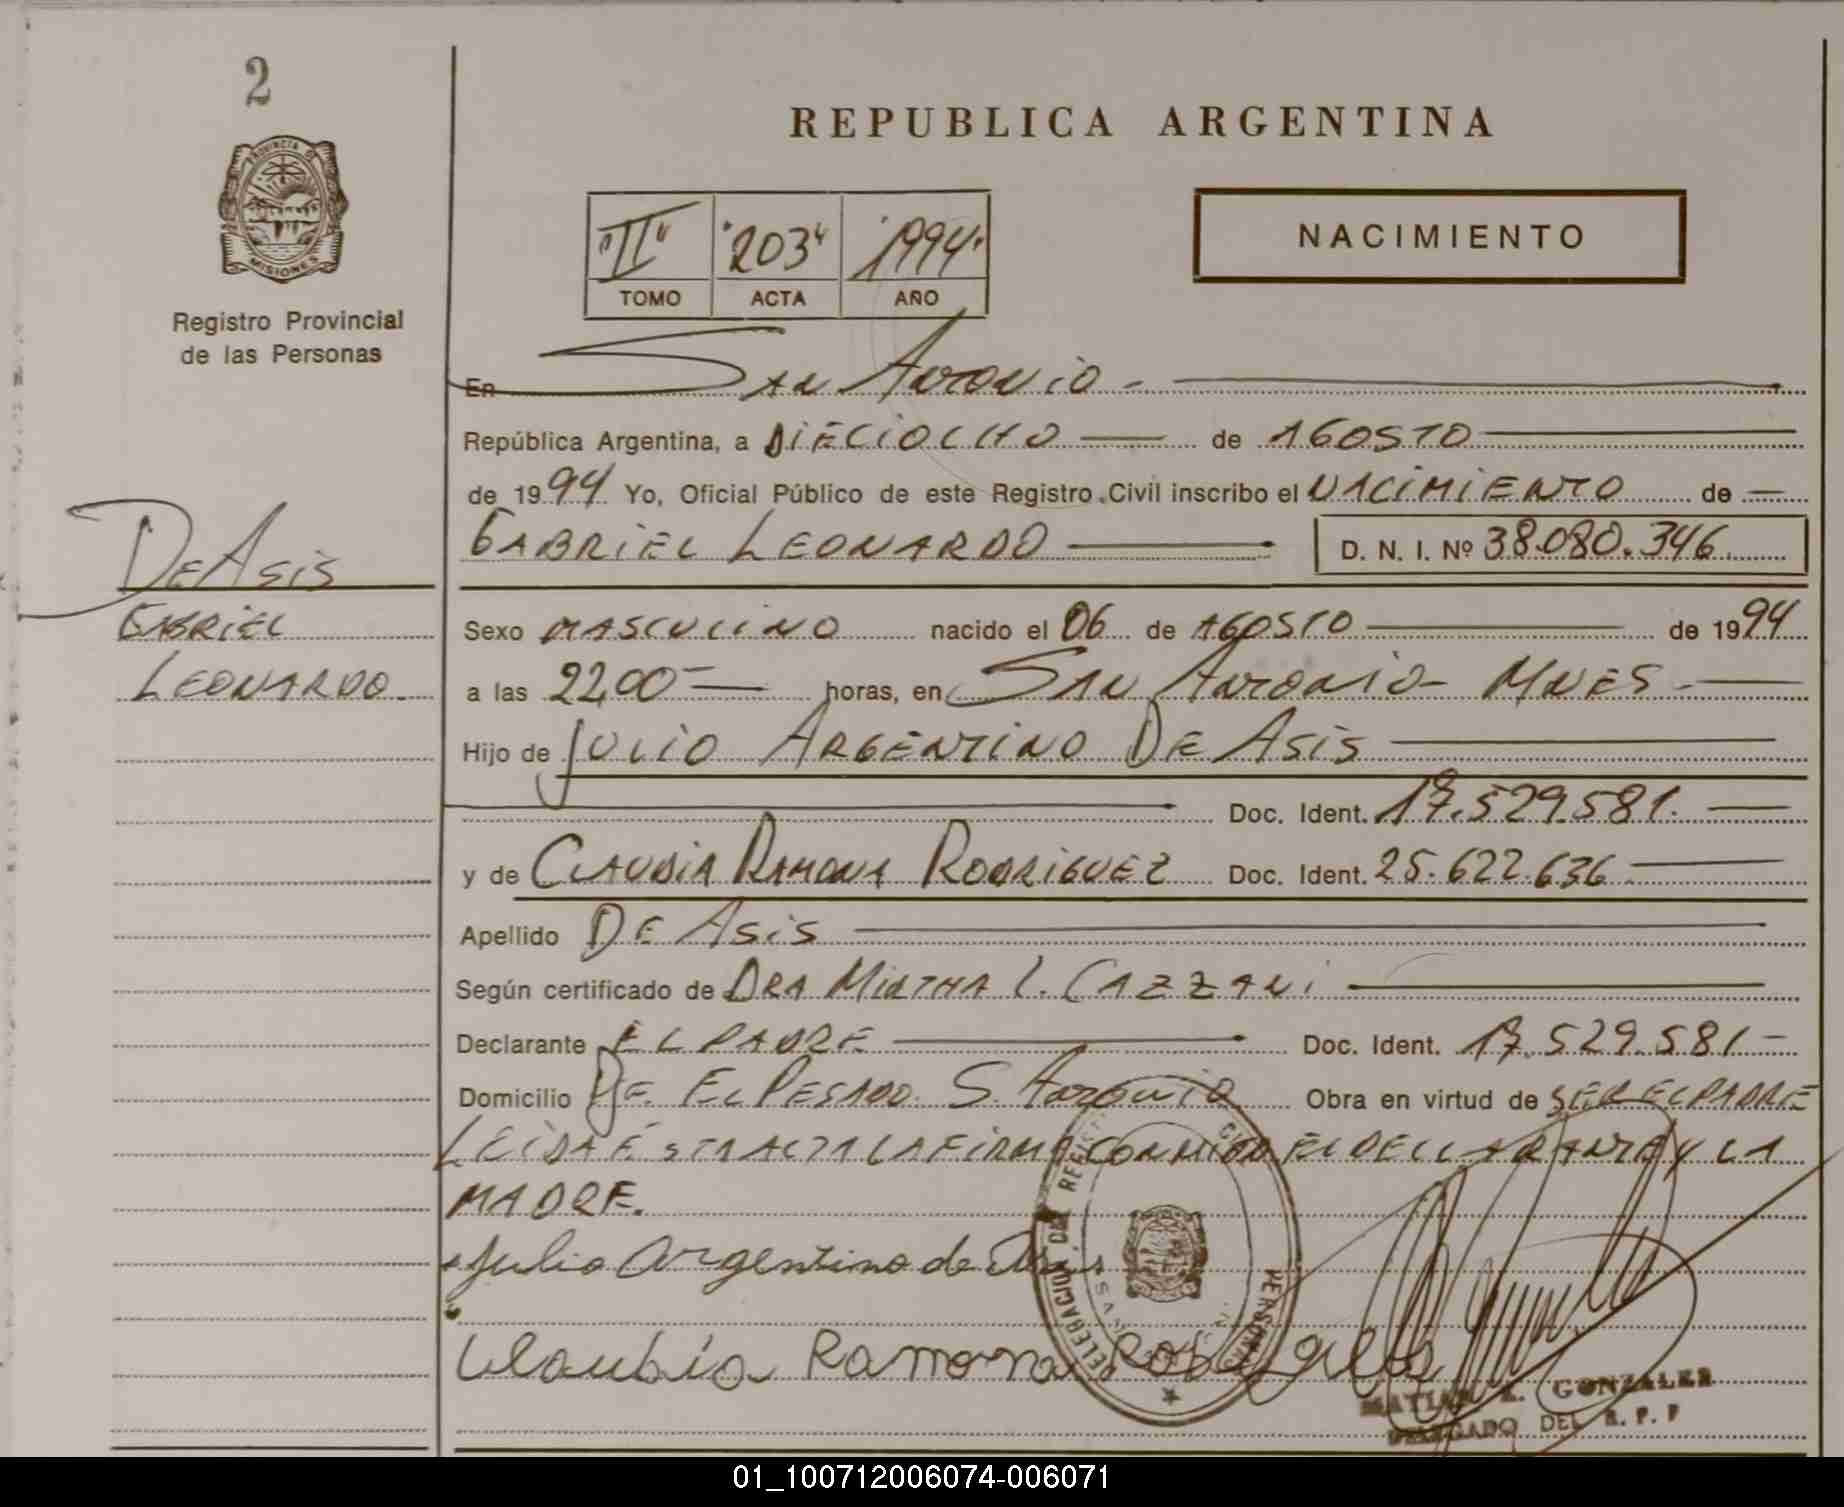 2
PROVINCIA DE
MISIONES
Registro Provincial
de las Personas
REPUBLICA ARGENTINA
NACIMIENTO
"II" "203" "1994"
TOMO ACTA AÑO
En SAN ANTONIO -
República Argentina, a DIECIOCHO de AGOSTO
de 1994 Yo, Oficial Público de este Registro Civil inscribo el NACIMIENTO de
GABRIEL LEONARDO D. N. I. Nº 38.080.346
DE ASIS
GABRIEL
LEONARDO
Sexo MASCULINO nacido el 06 de AGOSTO de 1994
a las 22,00 horas, en SAN ANTONIO - MNES -
Hijo de JULIO ARGENTINO DE ASIS
Doc. Ident. 17.529.581.
y de CLAUDIA RAMONA RODRIGUEZ Doc. Ident. 25.622.636
Apellido DE ASIS
Según certificado de DRA MIRTHA L. CAZZANI
Declarante EL PADRE Doc. Ident. 17.529.581 -
Domicilio DE. EL PESADO. S. ANTONIO Obra en virtud de SER EL PADRE
LEIDA ESTA ACTA LA FIRMA CONMIGO EL DECLARANTE Y LA
MADRE.
Julio Argentino de Asis
Claudia Ramona
GONZALEZ
DELEGADO DEL R. P. P
01_100712006074-006071